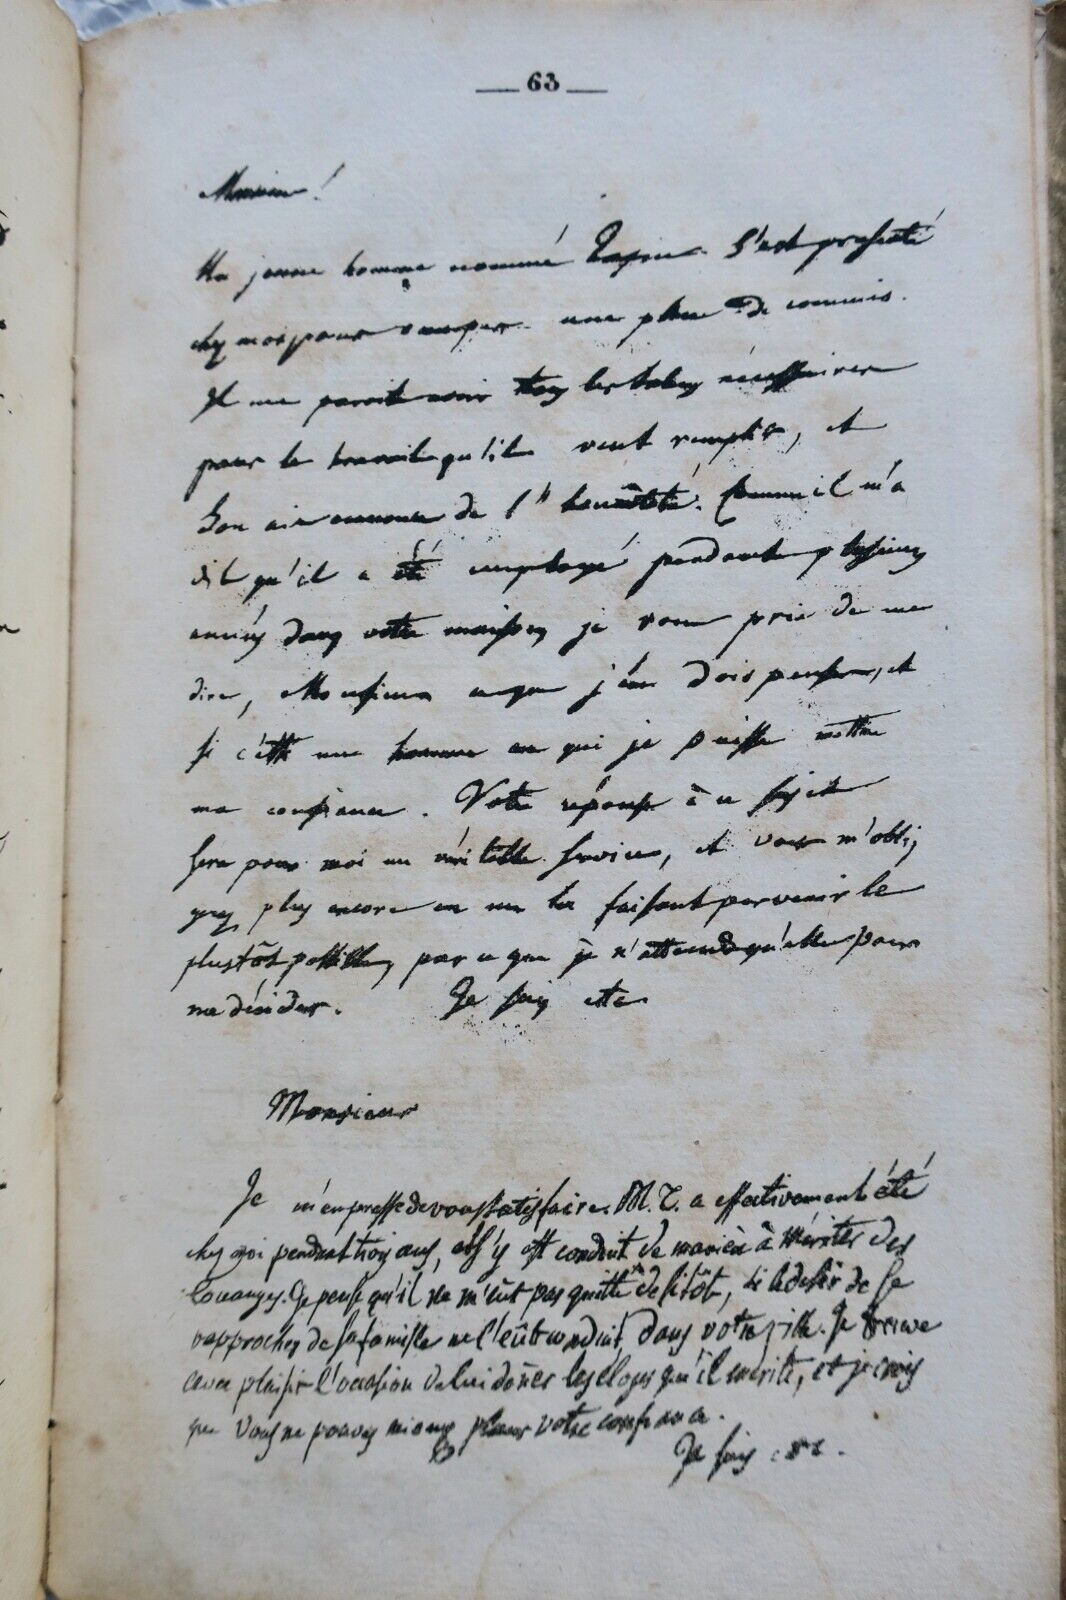 — 63 —
Monsieur!
Un jeune homme nommé s'est presenté
chez moi pour occuper une place de commis.
Il me paroit avoir tous les talens nécessaires
pour le travail qu'il veut remplir, et
son air annonce de l'honnêteté. Comme il m'a
dit qu'il a été employé pendant plusieurs
années dans votre maison, je vous prie de me
dire, Monsieur ce que j'en dois penser, et
si c'est un homme en qui je puisse mettre
ma confiance. Votre réponse à ce sujet
sera pour moi un véritable service, et vous m'obli,
gerez plus encore en me la faisant parvenir le
plustôt possible, par ce que je n'attends qu'elle pour
me décider. Je suis etc
Monsieur
Je m'empresse de vous satisfaire. M. T. a effectivement été
chez moi pendant trois ans, et s'y est conduit de manièr à mériter des
louanges. Je pense qu'il ne m'eût pas quitté de sitôt, si le desir de se
rapprocher de sa famille ne l'eût conduit dans votre ville. Je trouve
avec plaisir l'occasion de lui doner les éloges qu'il mérite, et je crois
que vous ne pouvez mieux placer votre confiance.
Je suis etc.